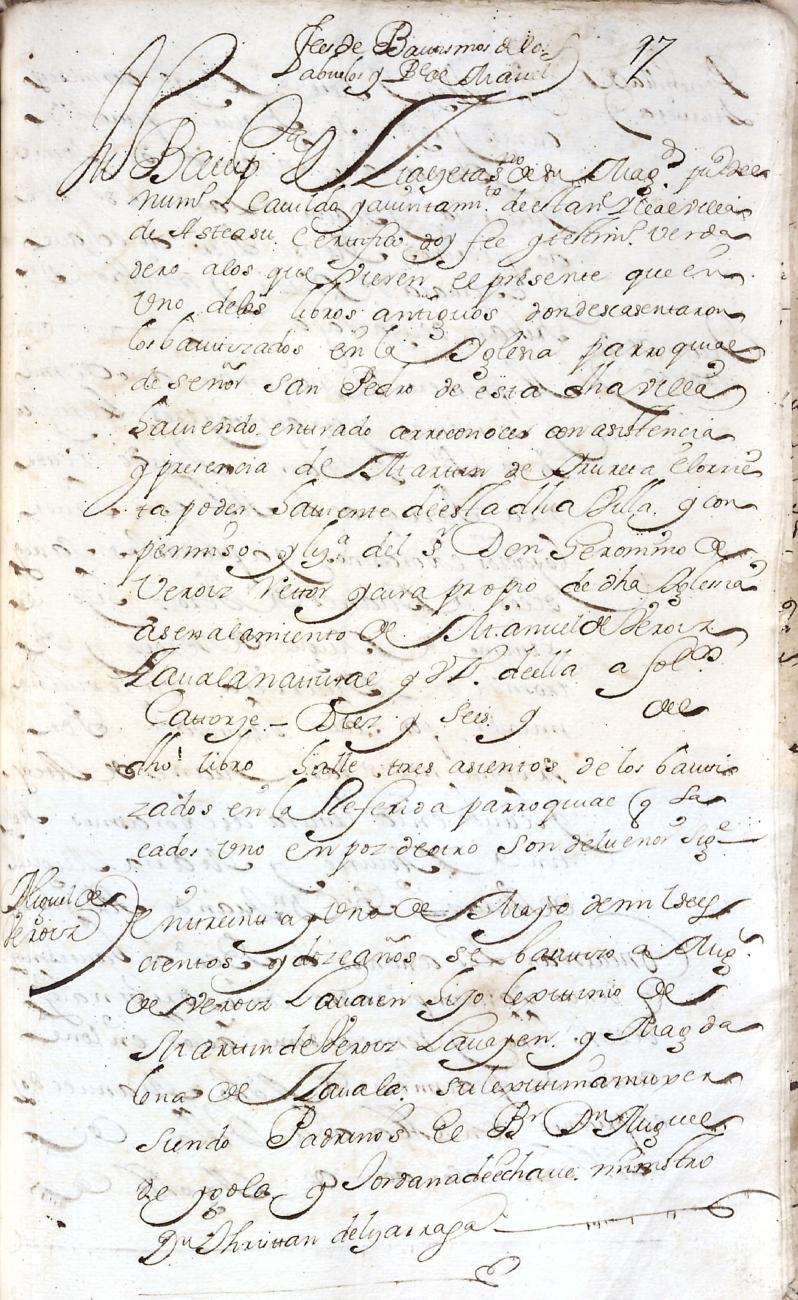 Fees de Baurismos de los 97
abuelos y Be. de Manuel
Yo Baup.ta de Liayeta ss.no de su Mag.d pu.co del
num.o Cauildo y auuntam.to de esta N. y Leal villa
de Asteasu. Certifico doy fee y testim.o Verda
dero a los que Vieren el presente que en
Uno delos libros antiguos donde se asentaron
los bautizados en la Yglesia parroquial
de señor San Pedro de esta dha villa
hauiendo entrado a rreconocer con asistencia
y presencia de Martin de Yrureta Elorrie
ta poder hauiente de esta dha Villa. y con
permiso y liz.a del S.r Don Geronimo de
Veroiz Rettor y cura propio de dha Yglesia
a señalamiento de Manuel de Veroiz
Zauala natural y vz.o de ella a fol.os
Cattorze - Diez y seis y de
dho libro halle tres asientos de los bauti
zados en la Referida parroquial y sa
cados Uno en poz de otro son del tenor sig.e
Miguel de
Veroiz
En treinta y Uno de Mayo de mil seis
cientos y diez años se bautizo a Mig.l
de Veroiz Lauaien hijo lexittimo de
Marttin de Veroiz Lauayen. y Magda
lena de Zauala. su lexittima muger
siendo Padrinos El B.r D.n Miguel
de yrola y Jordana de echaue. ministro
D.n Christian de lizarraga